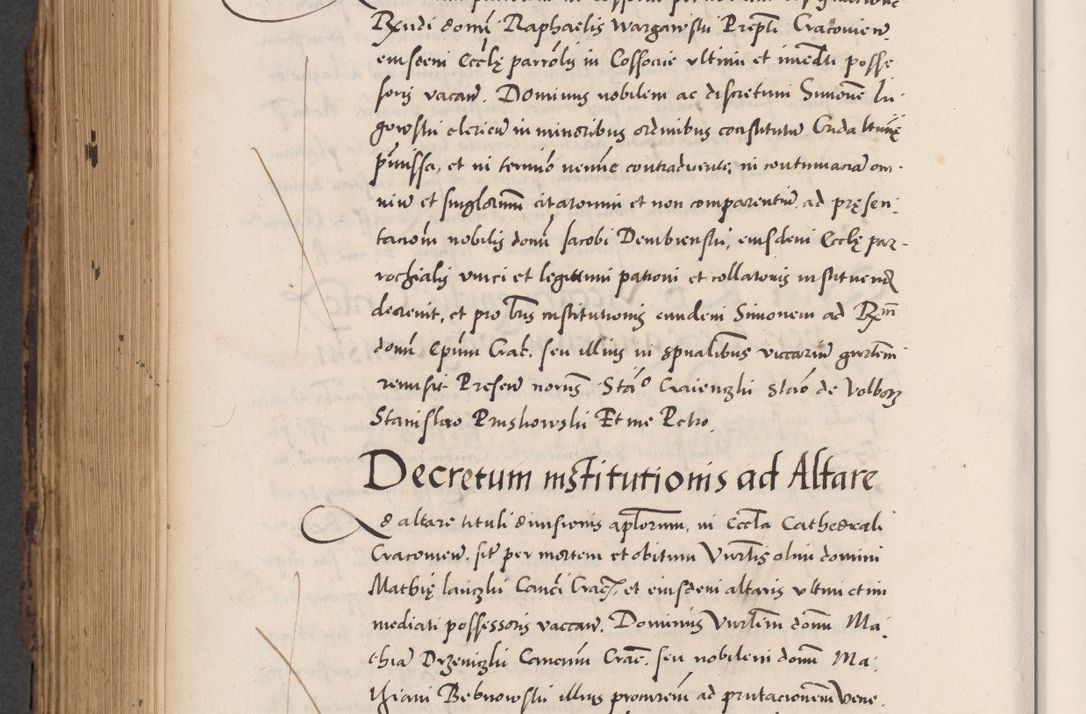 Rxndi domī Raphaelis Wargawski Preptī Cracovien
eiusdem Ecclę parrolis in Cossocice ultimi et immedti posse-
soris vacan. Dominus nobilem ac discretum Simonē Li-
gowski clericū in minoribus ordinibus constitutū Crida
pmissa, et in termio contradicenti, in contumaciā om-
niū et singlorum citatorum et non comparentiū, ad pręsen-
tacioni nobilis domi Jacobi Dembienski, eiusdem Ecclę par-
rochialis unici et legittimi patroni et collatoris instituend
decrevit, et pro lris institutionis eundem Simonem ad Rxm
domi Epūm Crac. seu illius in spualibus viccariū gnrlem
remisit Presen Stao Craienczki Stao de Volborz
Stanislao Pruskowski Et me Petro.
Decretum institutionis ad Altare
Ad altare tituli divisionis aplorum, in Eccla Cathedrali
Cracovien. sit per mortem et obitum Vnrlis olim domini
Mathię Laniczki Canci Crac, et eiusdem altaris ultimi et im
mediati possessoris vaccan. Dominus Vnrlem domi Ma-
thiā Drzeniczki Cancum Crac. seu nobilem domi Ma-
thiam Bebnowski illius procurem ad pntacionem Vene-